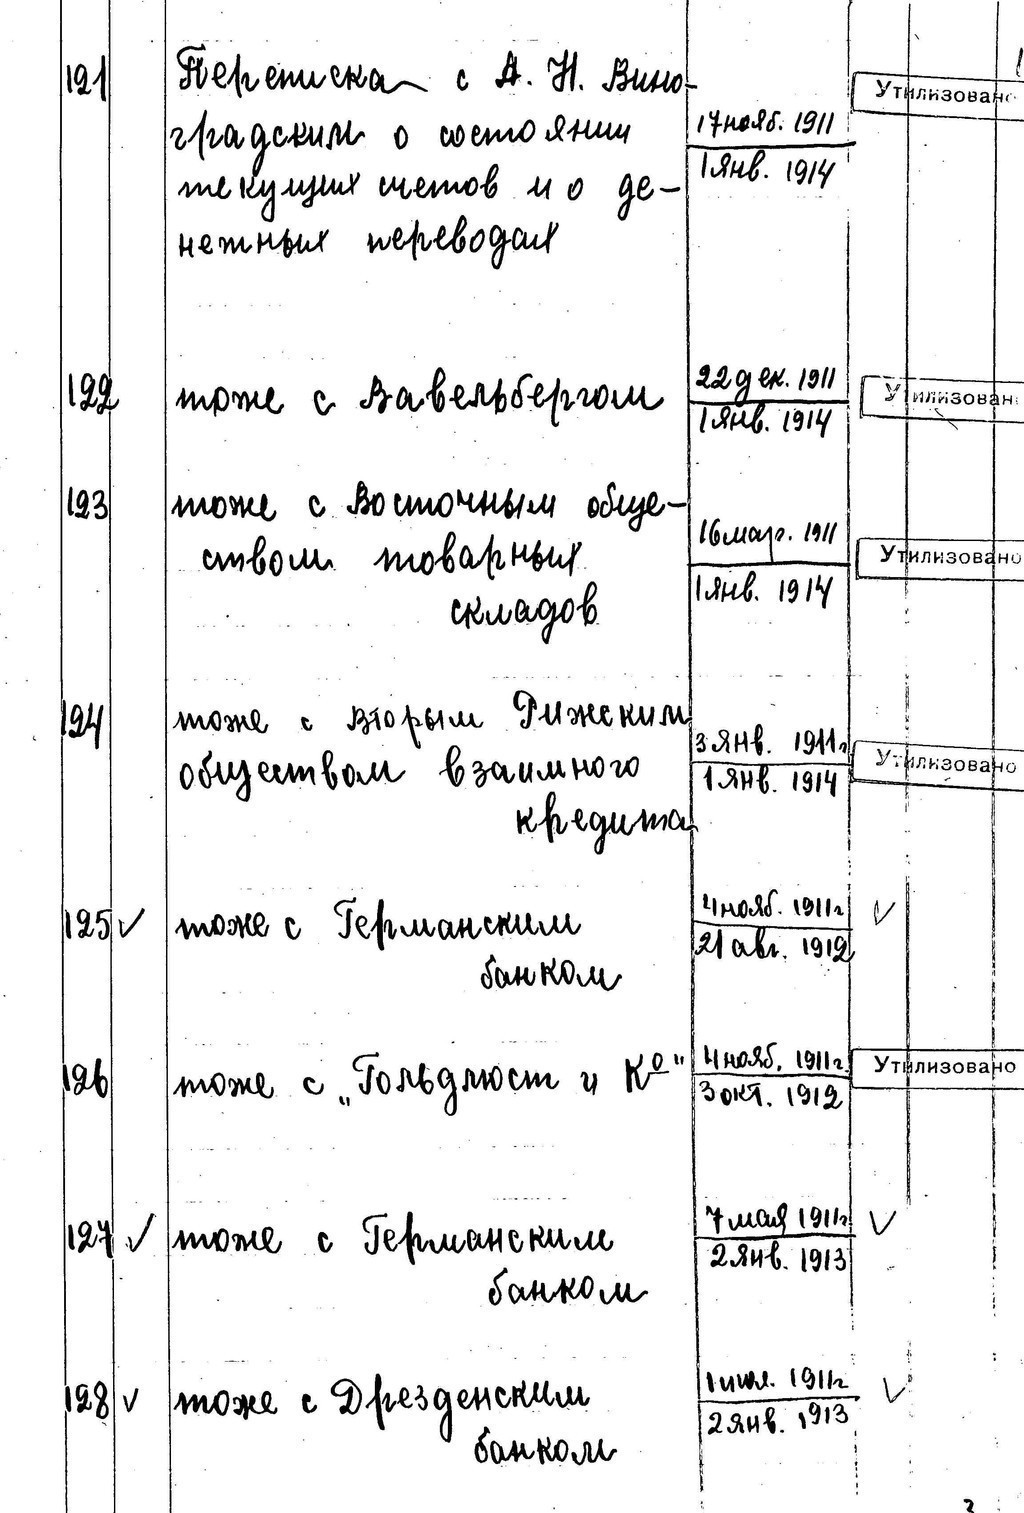 121 Переписка с А. Н. Вино-
градским о состоянии
текущих счетов и о де-
нежных переводах
17 нояб. 1911
1 янв. 1914
Утилизовано
122 тоже с Вавельбергом
22 дек. 1911
1 янв. 1914
Утилизован
123 тоже с Восточным обще-
ством товарных
складов
16 мар. 1911
1 янв. 1914
Утилизовано
124 тоже с вторым Рижским
обществом взаимного
кредита
3 янв. 1911 г.
1 янв. 1914
Утилизовано
125 ✓ тоже с Германским
банком
4 нояб. 1911 г ✓
21 авг. 1912
126 тоже с „Гольдлюст и Ко"
4 нояб. 1911 г.
3 окт. 1912
Утилизовано
127 ✓ тоже с Германским
банком
7 мая 1911 г. ✓
2 янв. 1913
128 ✓ тоже с Дрезденским
банком
1 июл. 1911 г ✓
2 янв. 1913